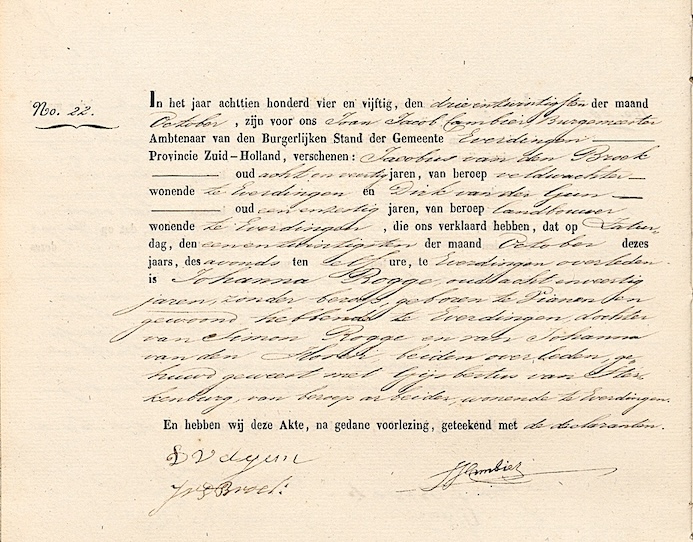 No. 22.
In het jaar achttien honderd vier en vijftig, den drieentwintigsten der maand
October, zijn voor ons Ivan Jacob Cambier Burgemeester
Ambtenaar van den Burgerlijken Stand der Gemeente Everdingen
Provincie Zuid-Holland, verschenen: Jacobus van den Broek
oud acht en veertig jaren, van beroep veldwachter
wonende te Everdingen en Dirk van der Gun
oud een en zestig jaren, van beroep landbouwer
wonende te Everdingen, die ons verklaard hebben, dat op Zatur-
dag, den eenentwintigsten der maand October dezes
jaars, des avonds ten elf ure, te Everdingen overleden
is Johanna Rogge, oud acht en veertig
jaren, zonder beroep, geboren te Vianen en
gewoond hebbende te Everdingen, dochter
van Simon Rogge en van Johanna
van den beiden overleden, ge
huwd geweest met Gijsbertus van Ster-
kenburg, van beroep arbeider, wonende te Everdingen.
En hebben wij deze Akte, na gedane voorlezing, geteekend met de declaranten.
D v d gun
JvdBroek
JJCambier